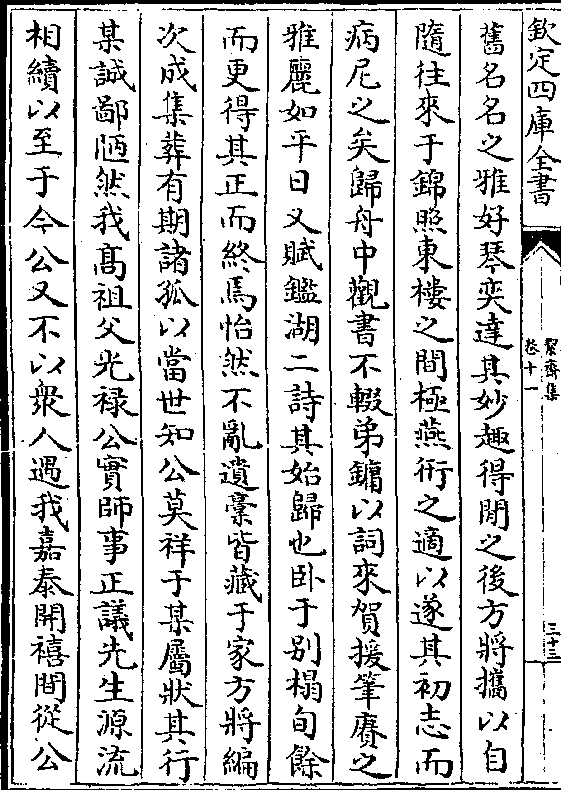 欽定四庫全書
絜齋集
卷十一
三十三
舊名名之雅好琴奕達其妙趣得閒之後方將攜以自
隨往來于錦照東樓之間極燕衎之適以遂其初志而
病尼之矣歸舟中觀書不輟弟鏞以詞來賀援筆賡之
雅麗如平日又賦鑑湖二詩其始歸也卧于別榻旬餘
而更得其正而終焉怡然不亂遺稾皆藏于家方將編
次成集葬有期諸孤以當世知公莫祥于某屬狀其行
某誠鄙陋然我髙祖父光禄公實師事正議先生源流
相續以至于今公又不以衆人遇我嘉泰開禧間從公